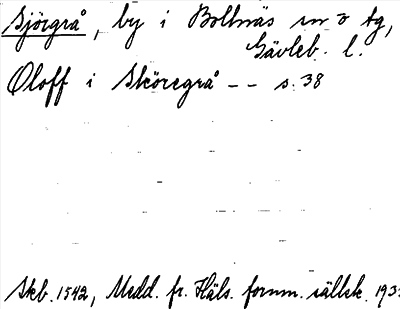 Sjörgrå, by i Bollnäs sn o tg,
Gävleb. l.
Oloff i Sköregrå -- s. 38
Skb. 1542, Medd. fr. Häls. fornm. sällsk. 193